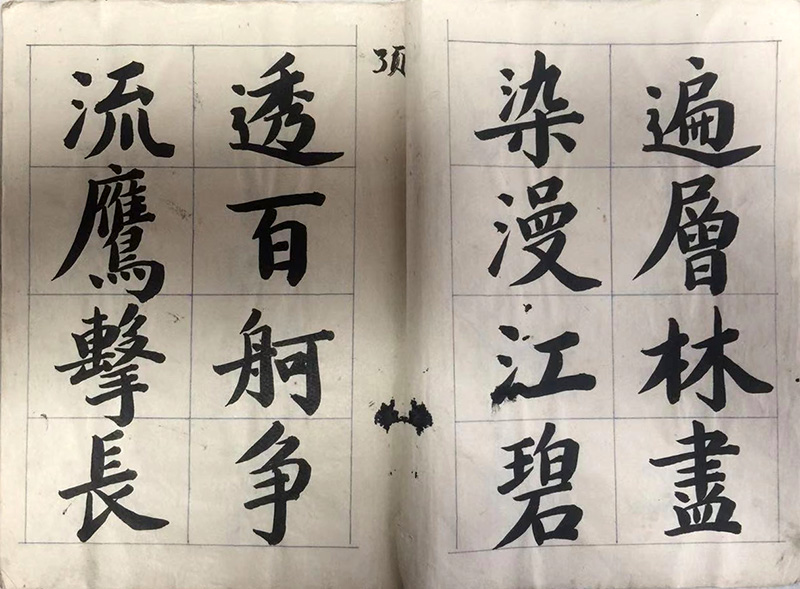 遍層林盡
染漫江碧
透百舸争
流鷹擊長